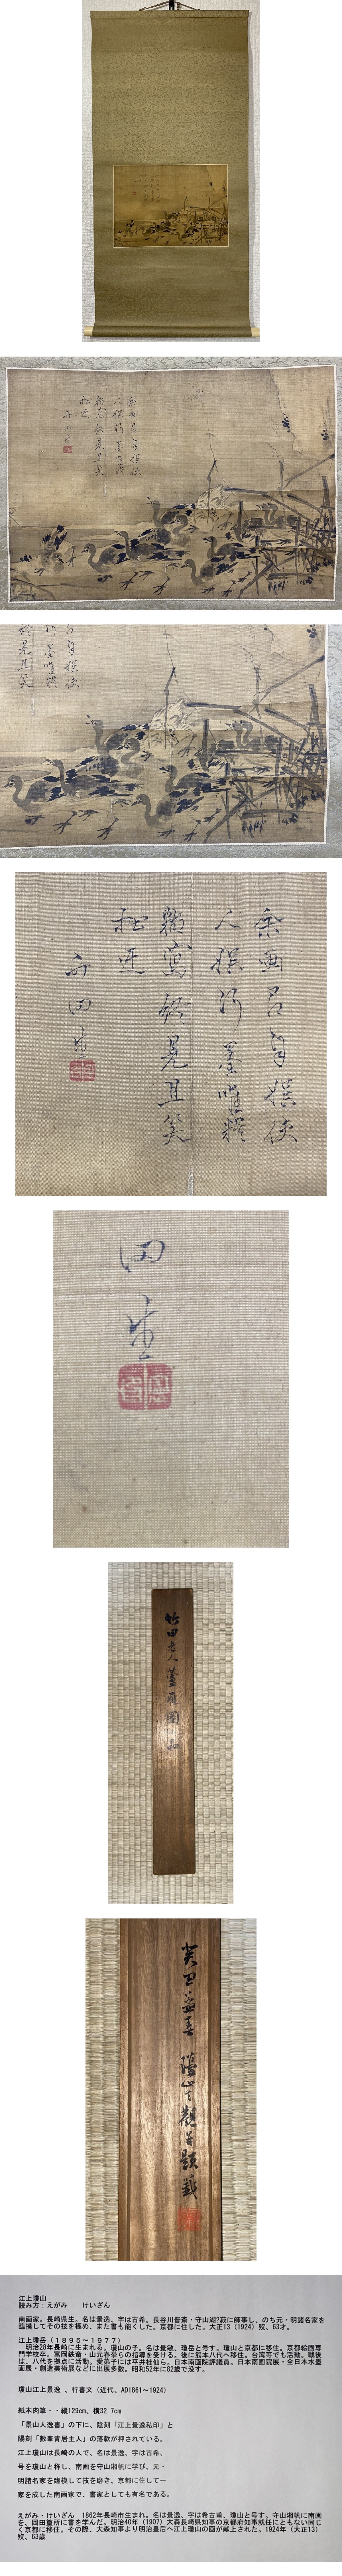 余画只自娯使
竹田生
田生
竹田老人蘆雁圖
癸丑孟春 瓊山 觀并題籤
江上瓊山
読み方:えがみ けいざん
南画家。長崎県生。名は景逸、字は古希。長谷川晋斎・守山湖?葭に師事し、のち元・明諸名家を
臨摸してその技を極め、また書も能くした。京都に住した。大正13(1924)歿、63才。
江上瓊岳(1895~1977)
明治28年長崎に生まれる。瓊山の子。名は景敏、瓊岳と号す。瓊山と京都に移住。京都絵画専
門学校卒。富岡鉄斎・山元春挙らの指導を受ける。後に熊本八代へ移住。台湾等でも活動。戦後
は、八代を拠点に活動。愛弟子には平井桂仙ら。日本南画院評議員。日本南画院展・全日本水墨
画展・創造美術展などに出展多数。昭和52年に82歳で没す。
瓊山江上景逸 、行書文(近代、AD1861~1924)
紙本肉筆・・縦129cm、横32.7cm
「景山人逸書」の下に、陰刻「江上景逸私印」と
陽刻「數峯青居主人」の落款が押されている。
江上瓊山は長崎の人で、名は景逸、字は古希、
号を瓊山と称し、南画を守山湘帆に学び、元・
明諸名家を臨模して技を磨き、京都に住して一
家を成した南画家で、書家としても有名である。
えがみ・けいざん 1862年長崎市生まれ。名は景逸、字は希古甫、瓊山と号す。守山湘帆に南画
を、岡田篁所に書を学んだ。明治40年(1907)大森長崎県知事の京都府知事就任にともない同じ
く京都に移住。その際、大森知事より明治皇后へ江上瓊山の画が献上された。1924年(大正13)
歿、63歳